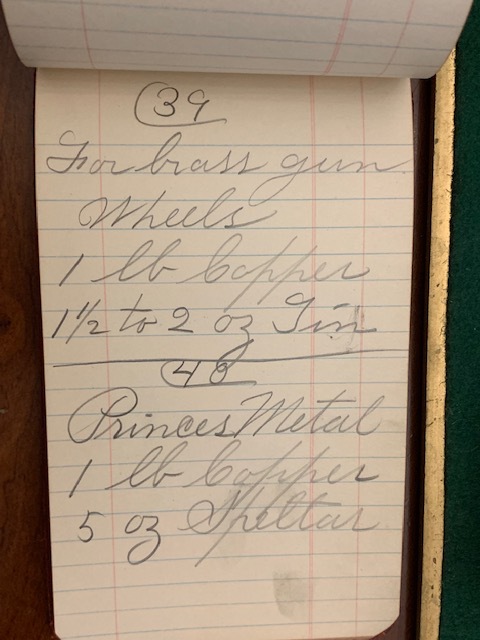 39
For brass gun
Wheels
1 lb Copper
1 1/2 to 2 oz Tin
40
Princes Metal
1 lb Copper
5 oz Speltar